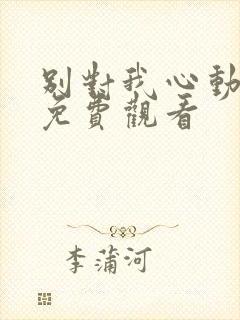 别對我心動
免費觀看
李蒲河